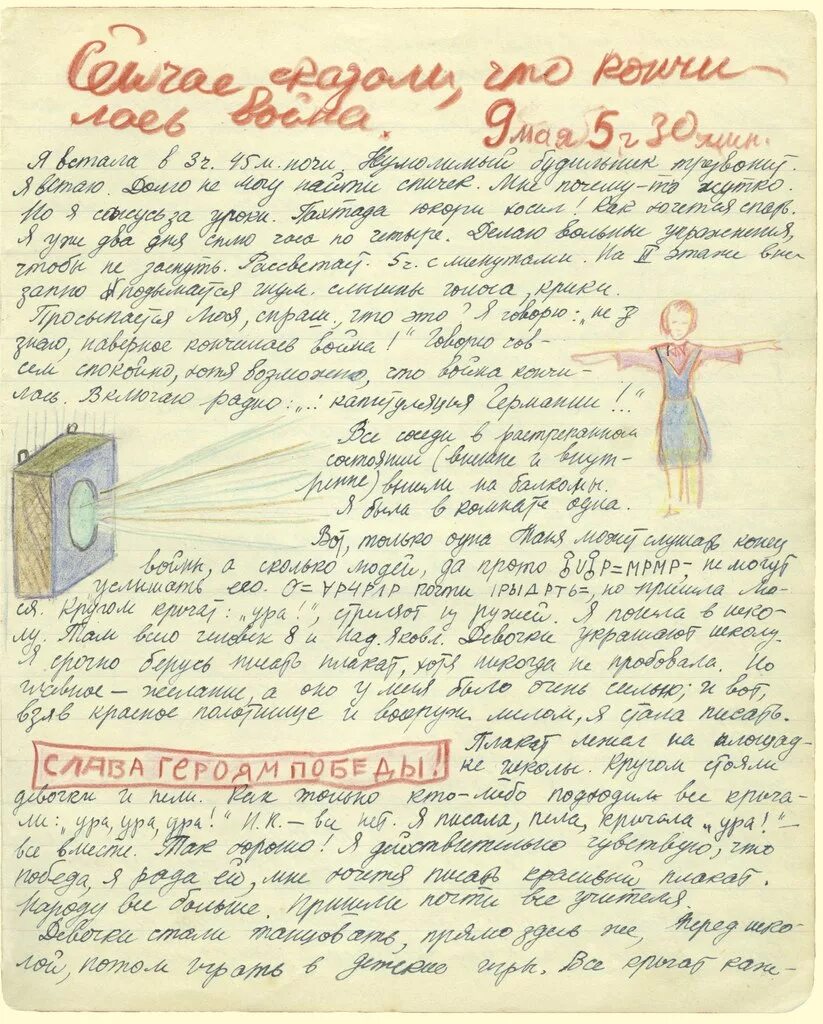 Сейчас сказали, что кончи-
лась война.
9 мая 5 ч 30 мин.
Я встала в 3 ч. 45 м. ночи. Неумолимый будильник трезвонит.
Я встаю. Долго не могу найти спичек. Мне почему-то жутко.
Но я сажусь за уроки. Пахтада юкори хосил! Как хочется спать.
Я уже два дня сплю часа по четыре. Делаю вольные упражнения,
чтобы не заснуть. Рассветает. 5 ч. с минутами. На II этаже вне-
запно подымается шум. слышны голоса, крики.
Просыпается Мося, спраш., что это? Я говорю: „не
знаю, наверное кончилась война!" Говорю сов-
сем спокойно, хотя возможно, что война кончи-
лась. Включаю радио: „... капитуляция Германии!..."
Все соседи в растрепанном
состоянии (внешне и внут-
ренне) вышли на балконы.
Я была в комнате одна.
Вот, только одна Таня может слушать конец
войны, а сколько людей, да просто не могут
услышать его. почти но пришла Мо-
ся. Кругом кричат: „ура!", стреляют из ружей. Я пошла в шко-
лу. Там всего человек 8 и Над. Яковл. Девочки украшают школу.
Я срочно берусь писать плакат, хотя никогда не пробовала. Но
главное – желание, а оно у меня было очень сильно; и вот,
взяв красное полотнище и вооруж. мелом, я стала писать.
СЛАВА ГЕРОЯМ ПОБЕДЫ!
Плакат лежал на площад-
ке школы. Кругом стояли
девочки и пели. Как только кто-либо подходил все крича-
ли: „ура, ура, ура!" И.К. – все нет. Я писала, пела, кричала „ура!" –
все вместе. Так хорошо! Я действительно чувствую, что
победа, я рада ей, мне хочется писать красивый плакат.
Народу все больше. Пришли почти все учителя.
Девочки стали танцовать, прямо здесь же, перед шко-
лой, потом играть в детские игры. Все кричат каж-